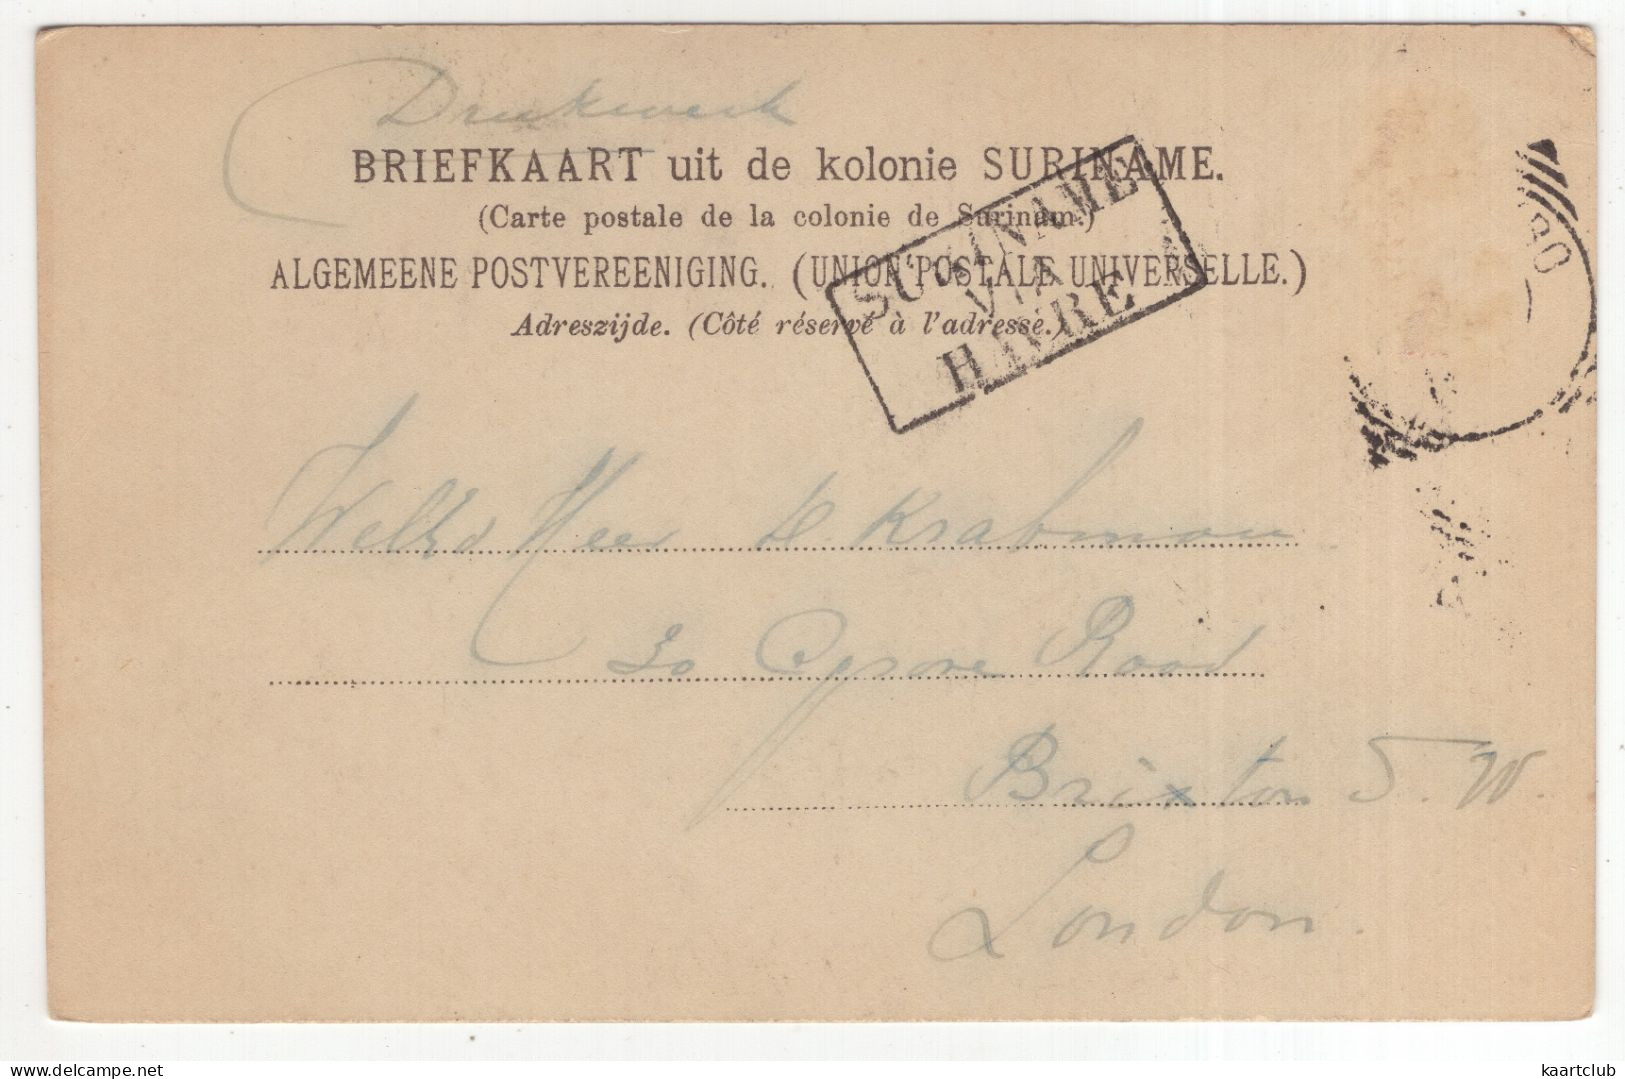 Drukwerk
BRIEFKAART uit de kolonie SURINAME.
(Carte postale de la colonie de Surinam.)
ALGEMEENE POSTVEREENIGING. (UNION POSTALE UNIVERSELLE.)
Adreszijde. (Côté réservé à l'adresse.)
SURINAME
VIA
HAVRE
Heer Krabman
30 Road
Brixton S.W.
London.
delcampe.net
kaartclub